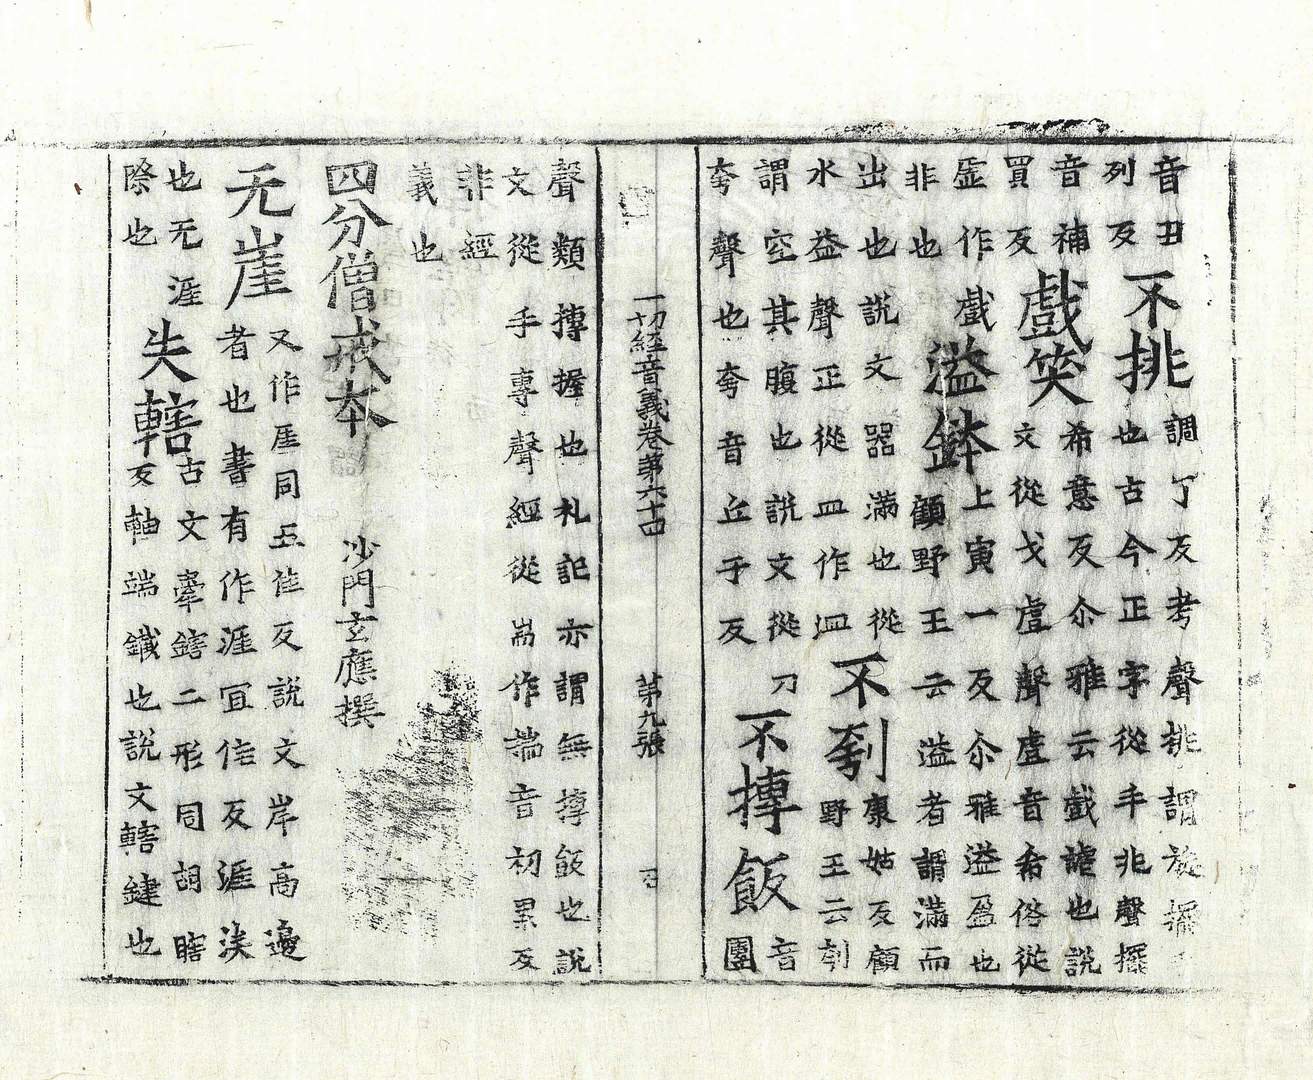 音丑列反不挑調丁反考聲挑謂旋擺也古今正字從手兆聲擺
音補買反戲笑希意反尒雅云戲謔也說文從戈䖒聲䖒音希俗從
虛作戲非也溢鉢上寅一反尒雅溢盈也顧野王云溢者謂滿而
出也說文器滿也從水益聲正從皿作皿不刳康姑反顧野王云刳
謂空其腹也說文從刀夸聲也夸音丘于反不摶飯音團
一切經音義卷第六十四 第九張
聲類摶握也札記亦謂無摶飯也說文從手專聲經從耑作揣音初累反
非經義也
四分僧戒本 沙門玄應撰
无崖又作厓同五佳反說文岸高邊者也書有作涯冝佳反涯涘
也无涯際也失轄古文牽鎋二形同胡瞎反軸端鐵也說文轄鍵也